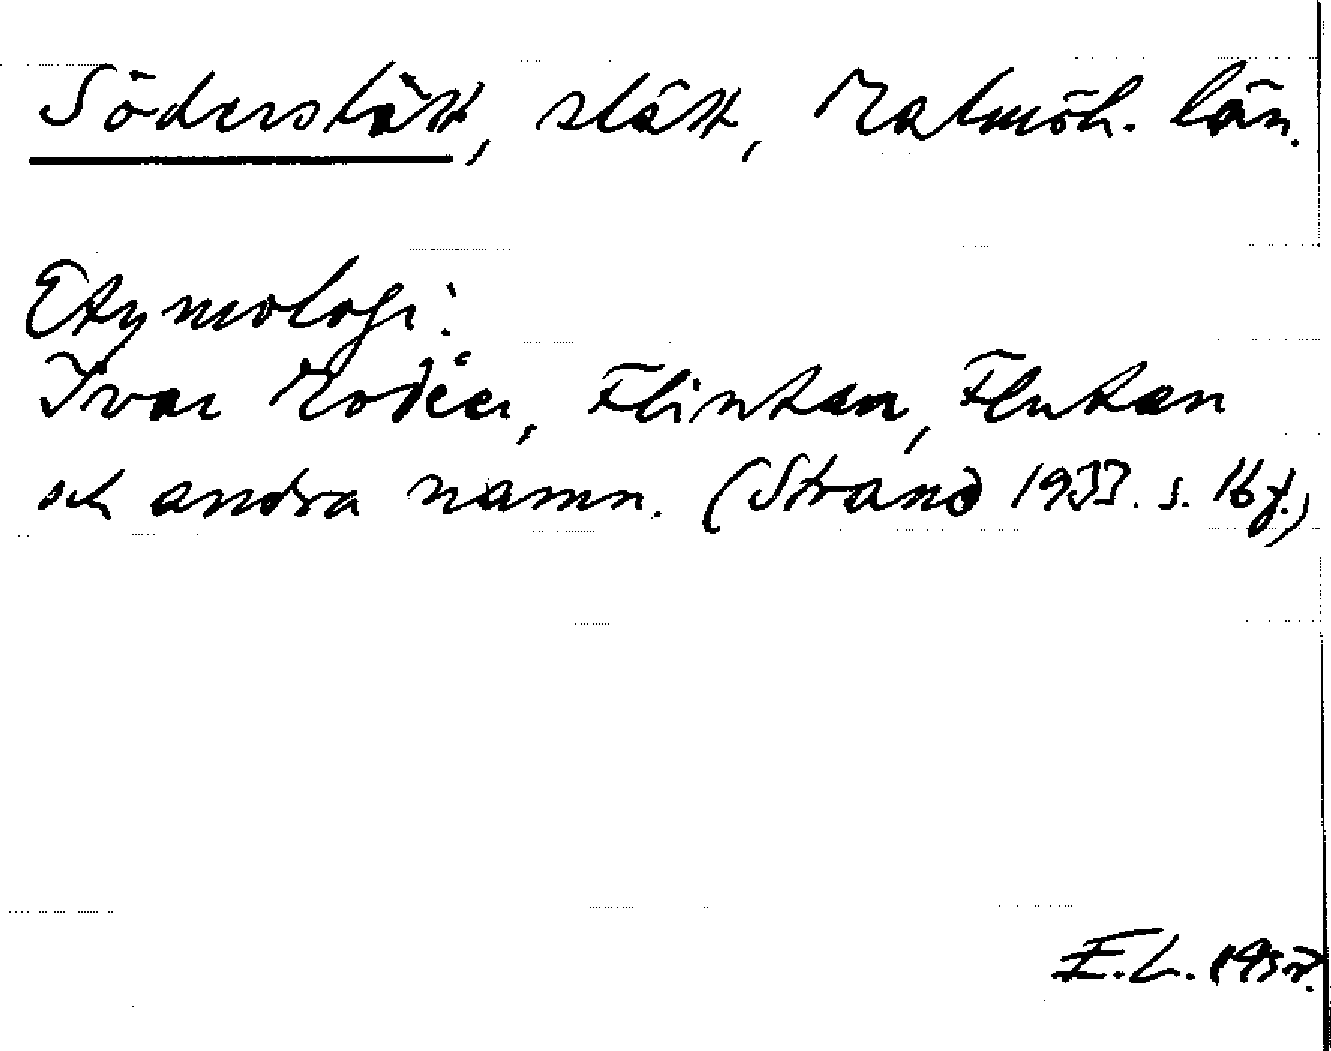 Söderslätt, slätt, Malmöh. län.
Etymologi:
Ivar Modéer, Flintan, Flutan
och andra namn. (Strand 1933. s. 16 f.)
E.L.